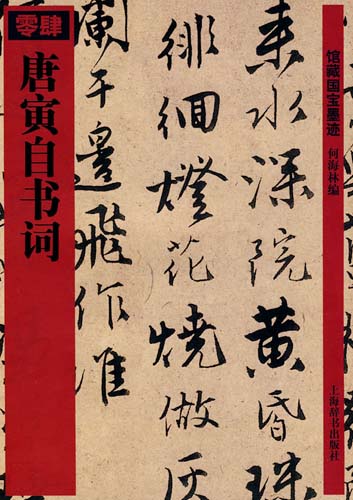 零肆
唐寅自书词
馆藏国宝墨迹
何海林编
上海辞书出版社
水深院黄昏珠
徘徊燈花燒做灰
闌干邊飛作堆